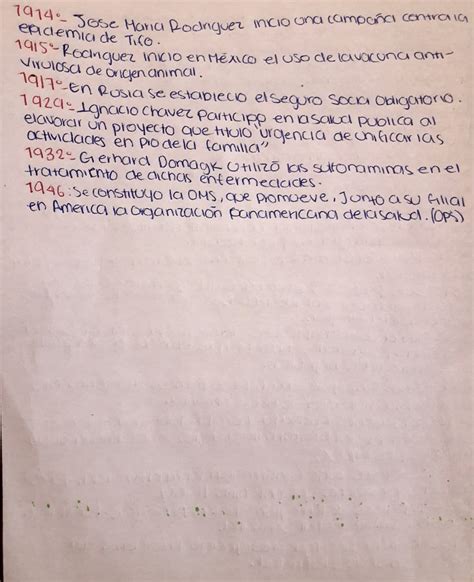 1914:- Jose Maria Rodriguez inicio una campaña contra la
epidemia de Tifo.
1915:- Rodriguez inicio en México el uso de la vacuna anti-
virulosa de origen animal.
1917:- En Rusia se establecio el seguro social obligatorio.
1929:- Ignacio Chavez Participo en la salud publica al
elavorar un proyecto que titulo "urgencia de unificar las
actividades en Pro de la familia"
1932:- Gerhard Domagk Utilizó las sulfonaminas en el
tratamiento de dichas enfermedades.
1946: Se constituyo la OMS, que promueve, Junto a su filial
en America la organización panamericana de la salud. (OPS)